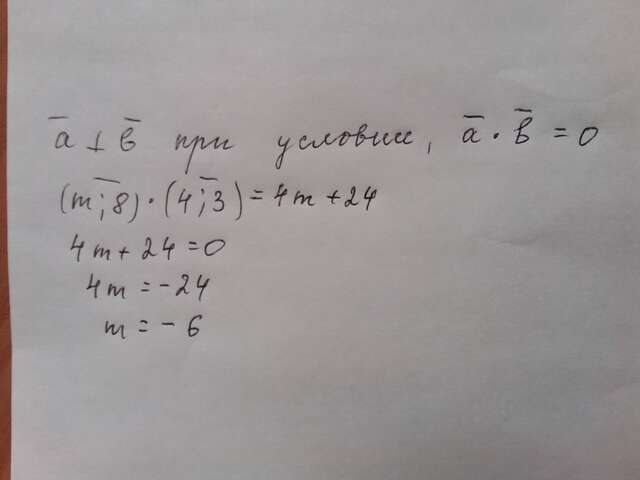 a̅ ⊥ b̅ при условии, a̅ · b̅ = 0
(m; 8) · (4; 3) = 4m + 24
4m + 24 = 0
4m = -24
m = - 6